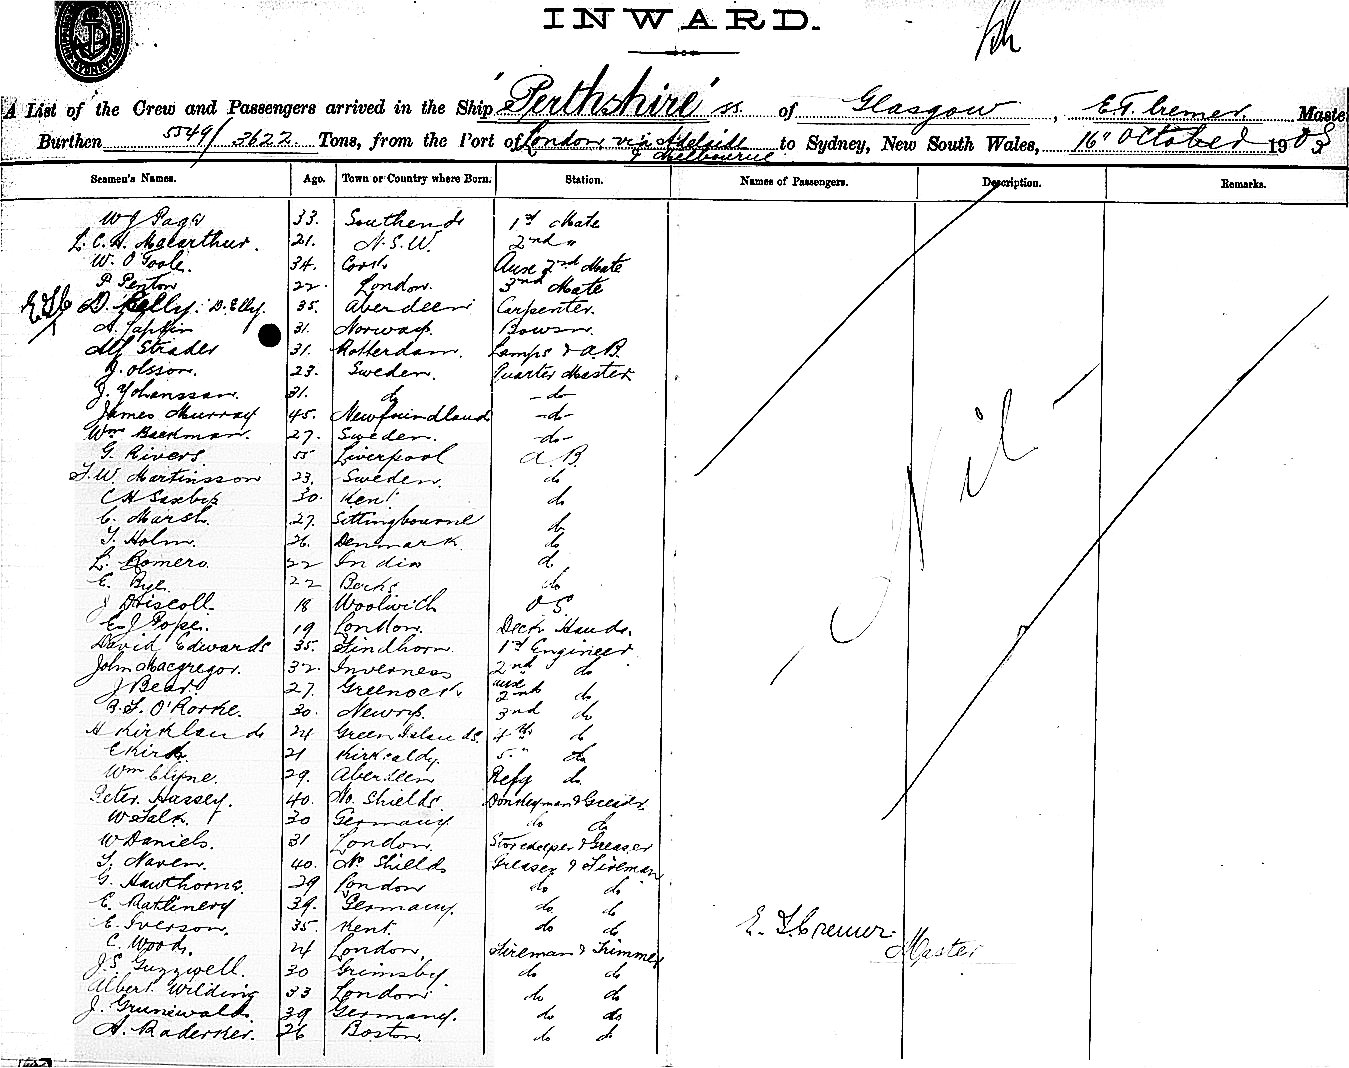 INWARD.
A List of the Crew and Passengers arrived in the Ship 'Perthshire' ss. of Glasgow, E. T. Cremer. Master
Burthen 5549/3622 Tons, from the Port of London via Adelaide & Melbourne to Sydney, New South Wales, 16" October 1903
Seamen's Names. Age. Town or Country where Born. Station. Names of Passengers. Description. Remarks.
W J Page 33. Southend 1st Mate
L. C. H. Macarthur. 21. N.S.W. 2nd "
W. O'Toole. 34. Cork Auxe 2nd Mate
P Penton 22. London. 3rd Mate
D. Kelly. D. Elly. 35. Aberdeen Carpenter.
A. 31. Norway. Bowsn.
Alf Strader 31. Rotterdam. Lamps & A.B.
J. Olsson. 23. Sweden. Quarter Master
J. Yohansson. 31. do -do-
James Murray 45. Newfoundland -do-
Wm Backman. 27. Sweden. -do-
G. Rivers. 55 Liverpool A.B.
F. W. Martinsson 23. Sweden. do
C H Saxby 30. Kent do
C. Marsh. 27. Sittingbourne do
T. Holm. 26. Denmark. do
L. Romero. 22 India do
E. Bye. 22 Berks do
J Driscoll. 18 Woolwich O S
E. J Pope. 19 London. Deck Hands.
David Edwards 35. Findhorn. 1st Engineer
John Macgregor. 32. Inverness 2nd do
J Bear. 27. Greenock auxe 2nd do
R. L. O'Rorke. 30. Newry. 3rd do
A Kirkland 24 Green Islands. 4th do
E Kirk 21 Kirkcaldy. 5" do
Wm Clyne. 29. Aberdeen Refg do
Peter Hassey. 40. No. Shields Donkeyman & Greaser
W Falk. 30 Germany do do
W Daniels. 31 London. Storekeeper & Greaser
T. Naven. 40. No Shields Greaser & Fireman
G. Hawthorne. 29 London do do
E. Rattinery 39. Germany. do do
E. Iverson. 35. Kent. do do
C. Woods. 24 London, Fireman & Trimmer
J. S. Guzzwell. 30 Grimsby do do
Albert Wilding 33 London do do
J. Grunewald. 39 Germany. do do
A. Raderker. 26 Boston. do do
Nil
E. T. Cremer
Master